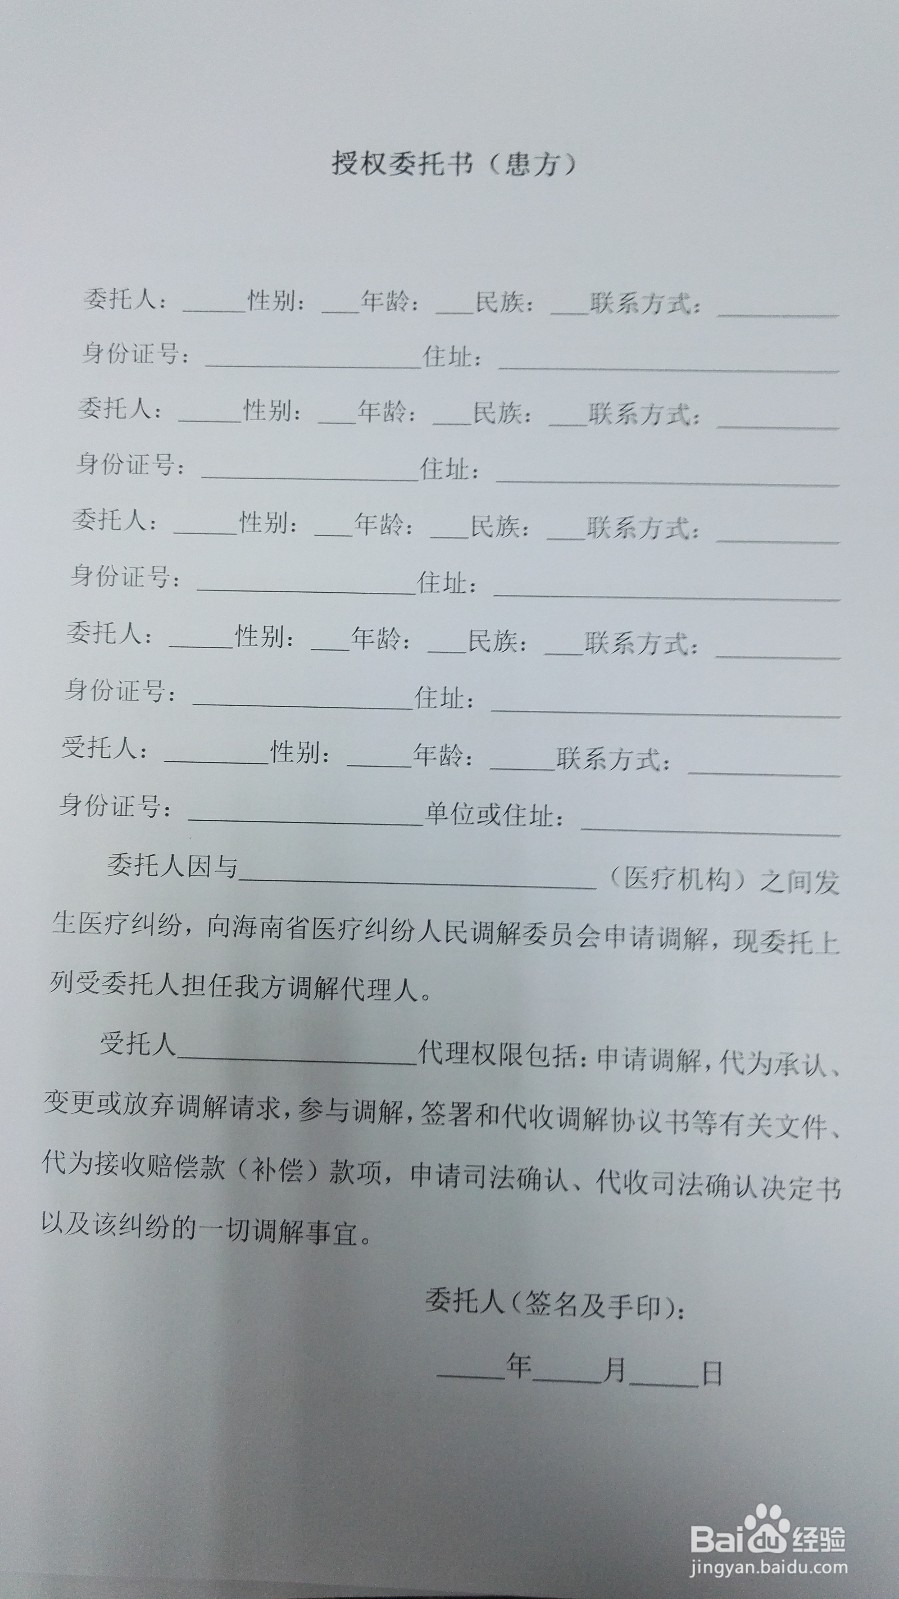 授权委托书（患方）
委托人：_____性别：___年龄：___民族：___联系方式：__________
身份证号：_________________住址：___________________________
委托人：_____性别：___年龄：___民族：___联系方式：__________
身份证号：_________________住址：___________________________
委托人：_____性别：___年龄：___民族：___联系方式：__________
身份证号：_________________住址：___________________________
委托人：_____性别：___年龄：___民族：___联系方式：__________
身份证号：_________________住址：___________________________
受托人：________性别：_____年龄：_____联系方式：____________
身份证号：__________________单位或住址：____________________
委托人因与___________________________（医疗机构）之间发
生医疗纠纷，向海南省医疗纠纷人民调解委员会申请调解，现委托上
列受委托人担任我方调解代理人。
受托人__________________代理权限包括：申请调解，代为承认、
变更或放弃调解请求，参与调解，签署和代收调解协议书等有关文件、
代为接收赔偿款（补偿）款项，申请司法确认、代收司法确认决定书
以及该纠纷的一切调解事宜。
委托人（签名及手印）：
_____年_____月_____日
Baidu经验
jingyan.baidu.com